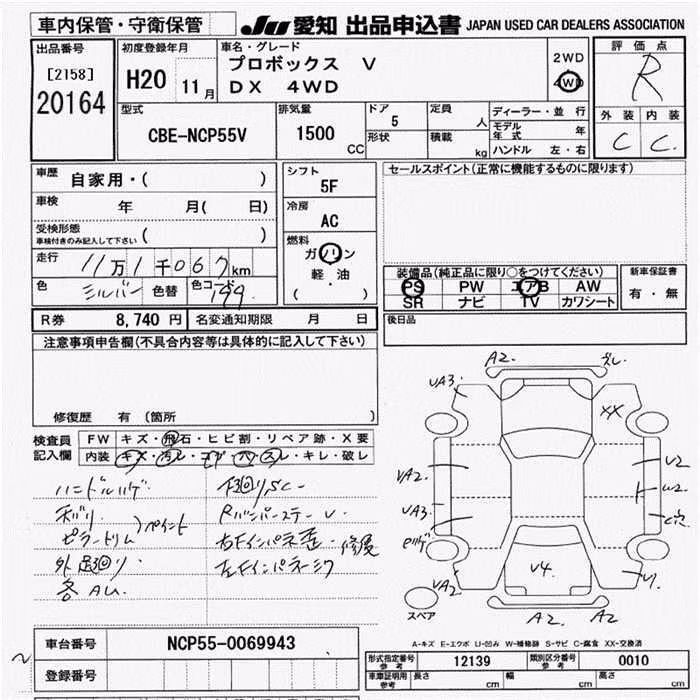 車内保管・守衛保管 JU 愛知 出品申込書 JAPAN USED CAR DEALERS ASSOCIATION
出品番号 初度登録年月 車名・グレード 評価点
[2158] H20 11月 プロボックス V 2WD R
20164 DX 4WD 4WD
型式 排気量 ドア 定員 ディーラー・並行 外装 内装
CBE-NCP55V 1500 CC 5 人 モデル年式 年 C C
形状 積載 kg ハンドル 左・右
車歴 自家用・( ) シフト セールスポイント(正常に機能するものに限ります)
5F
車検 年 月( 日) 冷房
AC
受検形態 ( )
車検付きのみ記入して下さい
燃料
走行 11万1千067km ガソリン 装備品(純正品に限り○をつけてください) 新車保証書
色 シルバー 色替 色コード 199 軽・油 PS PW エアB AW 有・無
( ) SR ナビ TV カワシート
R券 8,740円 名変通知期限 月 日 後日品
注意事項申告欄(不具合内容等は具体的に記入して下さい)
修復歴 有 (箇所 )
検査員 FW キズ・飛石・ヒビ割・リペア跡・X要
記入欄 内装 キズ・汚レ・コゲ・穴・スレ・キレ・破レ
ハンドルハゲ 下廻りSC
ピラートリム ペイント
外足廻り
各AU
RバンパーステーU
右Fインパネ歪・修復
左Fインパネ
A2 UA3 XX
UA2 U2
UA3 W2
UA2 U4 U1
スペア A2 A2
A-キズ E-エクボ U-凹み W-補修跡 S-サビ C-腐食 XX-交換済
車台番号 NCP55-0069943 形式指定番号 参考 12139 類別区分番号 参考 0010
登録番号 車庫証明用 参考 長さ cm 幅 cm 高さ cm